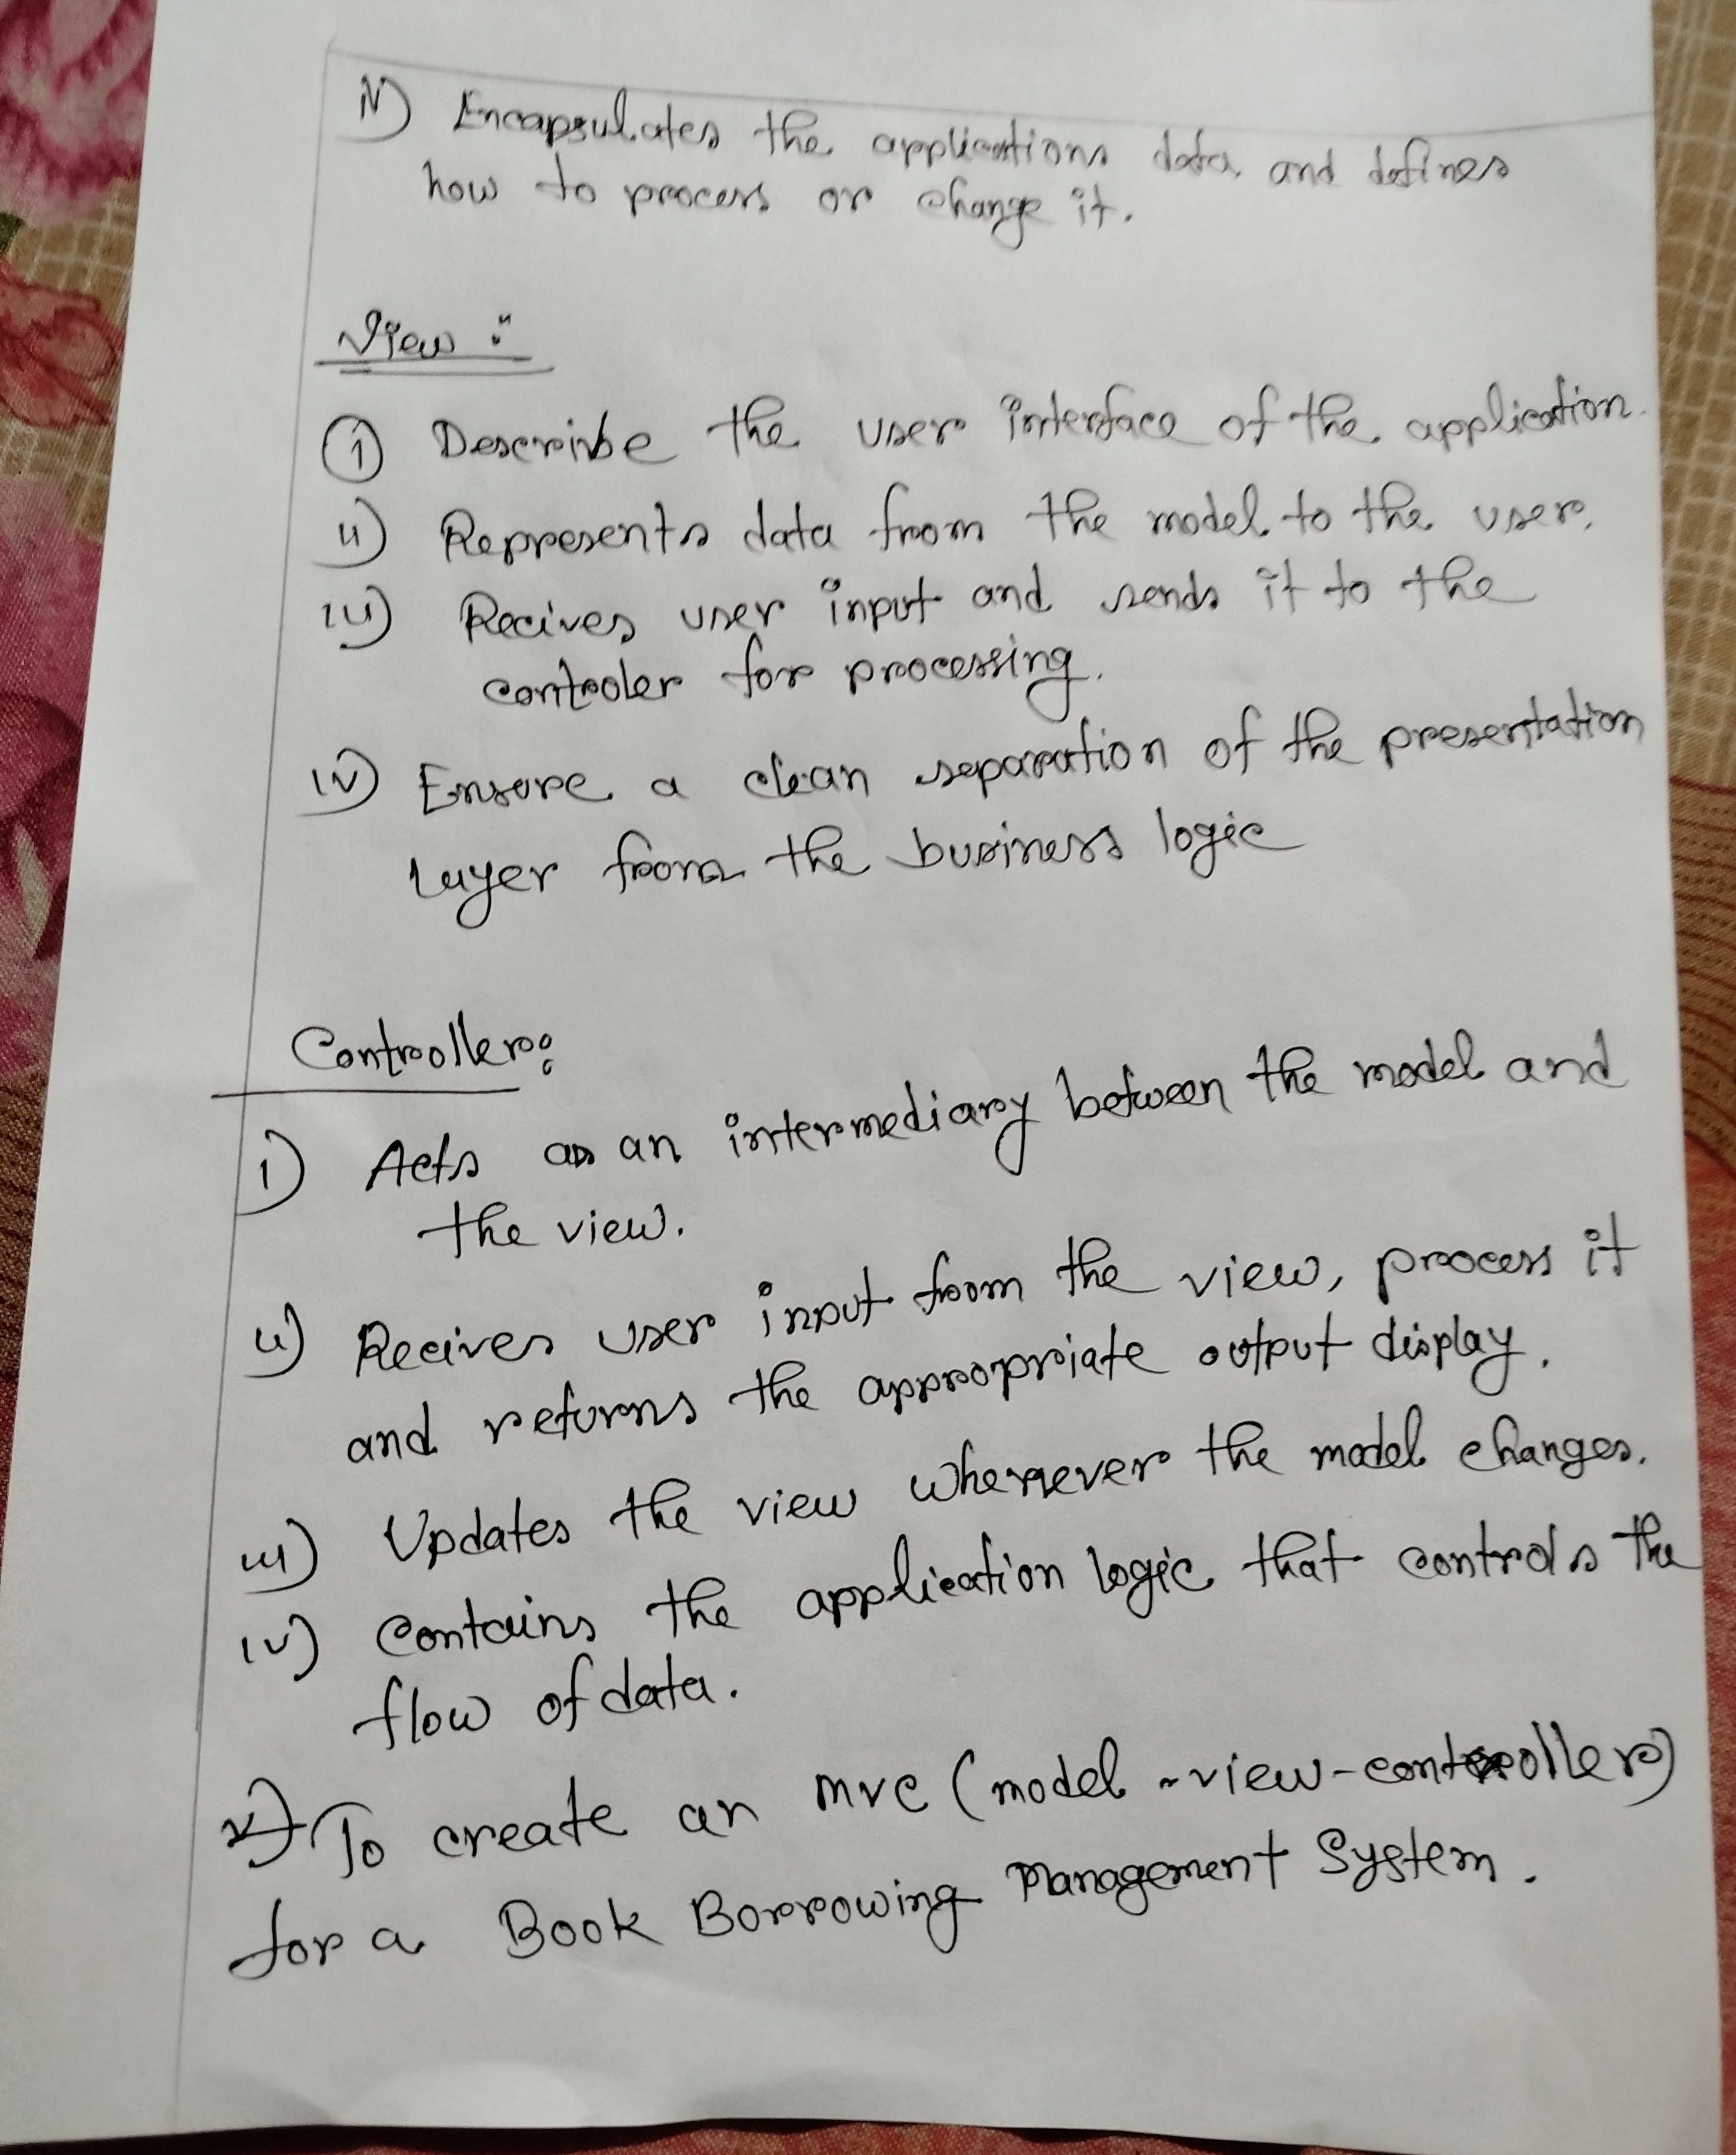 iv) Encapsulates the applications data and defines
how to process or change it.
View :
(i) Describe the user interface of the application.
ii) Represents data from the model to the user.
iii) Recives user input and sends it to the
controler for processing.
iv) Ensure a clean separation of the presentation
layer from the business logic
Controller:
i) Acts as an intermediary between the model and
the view.
ii) Recives user input from the view, process it
and returns the appropriate output display.
iii) Updates the view whenever the model changes.
iv) Contains the application logic that controls the
flow of data.
To create an mvc (model-view-controller)
for a Book Borrowing Management System.